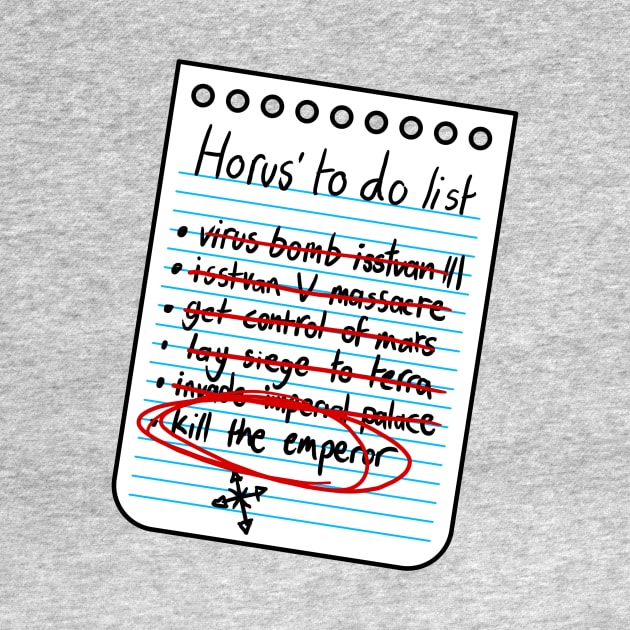 Horus' to do list
• virus bomb isstvan III
• isstvan V massacre
• get control of mars
• lay siege to terra
• invade imperial palace
• kill the emperor